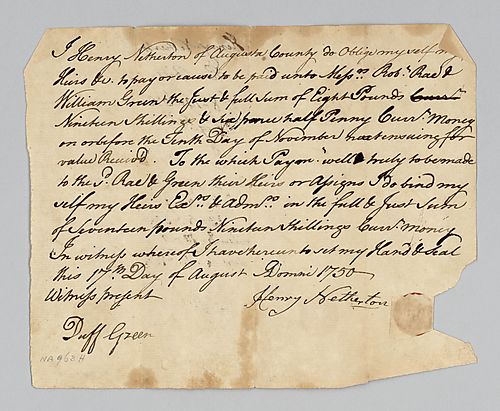 I Henry Netherton of Augusta County do Oblige my self my
Heirs &c. to pay or cause to be paid unto Messrs. Robt. Rae &
William Green the Just & full Sum of Eight Pounds Curr.
Nineteen Shillings & Six pence half Penny Curr. Money
on or before the Tenth Day of November next ensuing for
value Receiv'd. To the which Paymt. well & truly to be made
to the Sd. Rae & Green their Heirs or Assigns I do bind my
self my Heirs Exrs. & Admrs. in the full & Just Sum
of Seventeen pounds Nineteen Shillings Curr. money
In witness whereof I have hereunto set my Hand & Seal
this 17th. Day of August Domini 1750
Witness present
Henry Netherton
Duff Green
NA 962 H